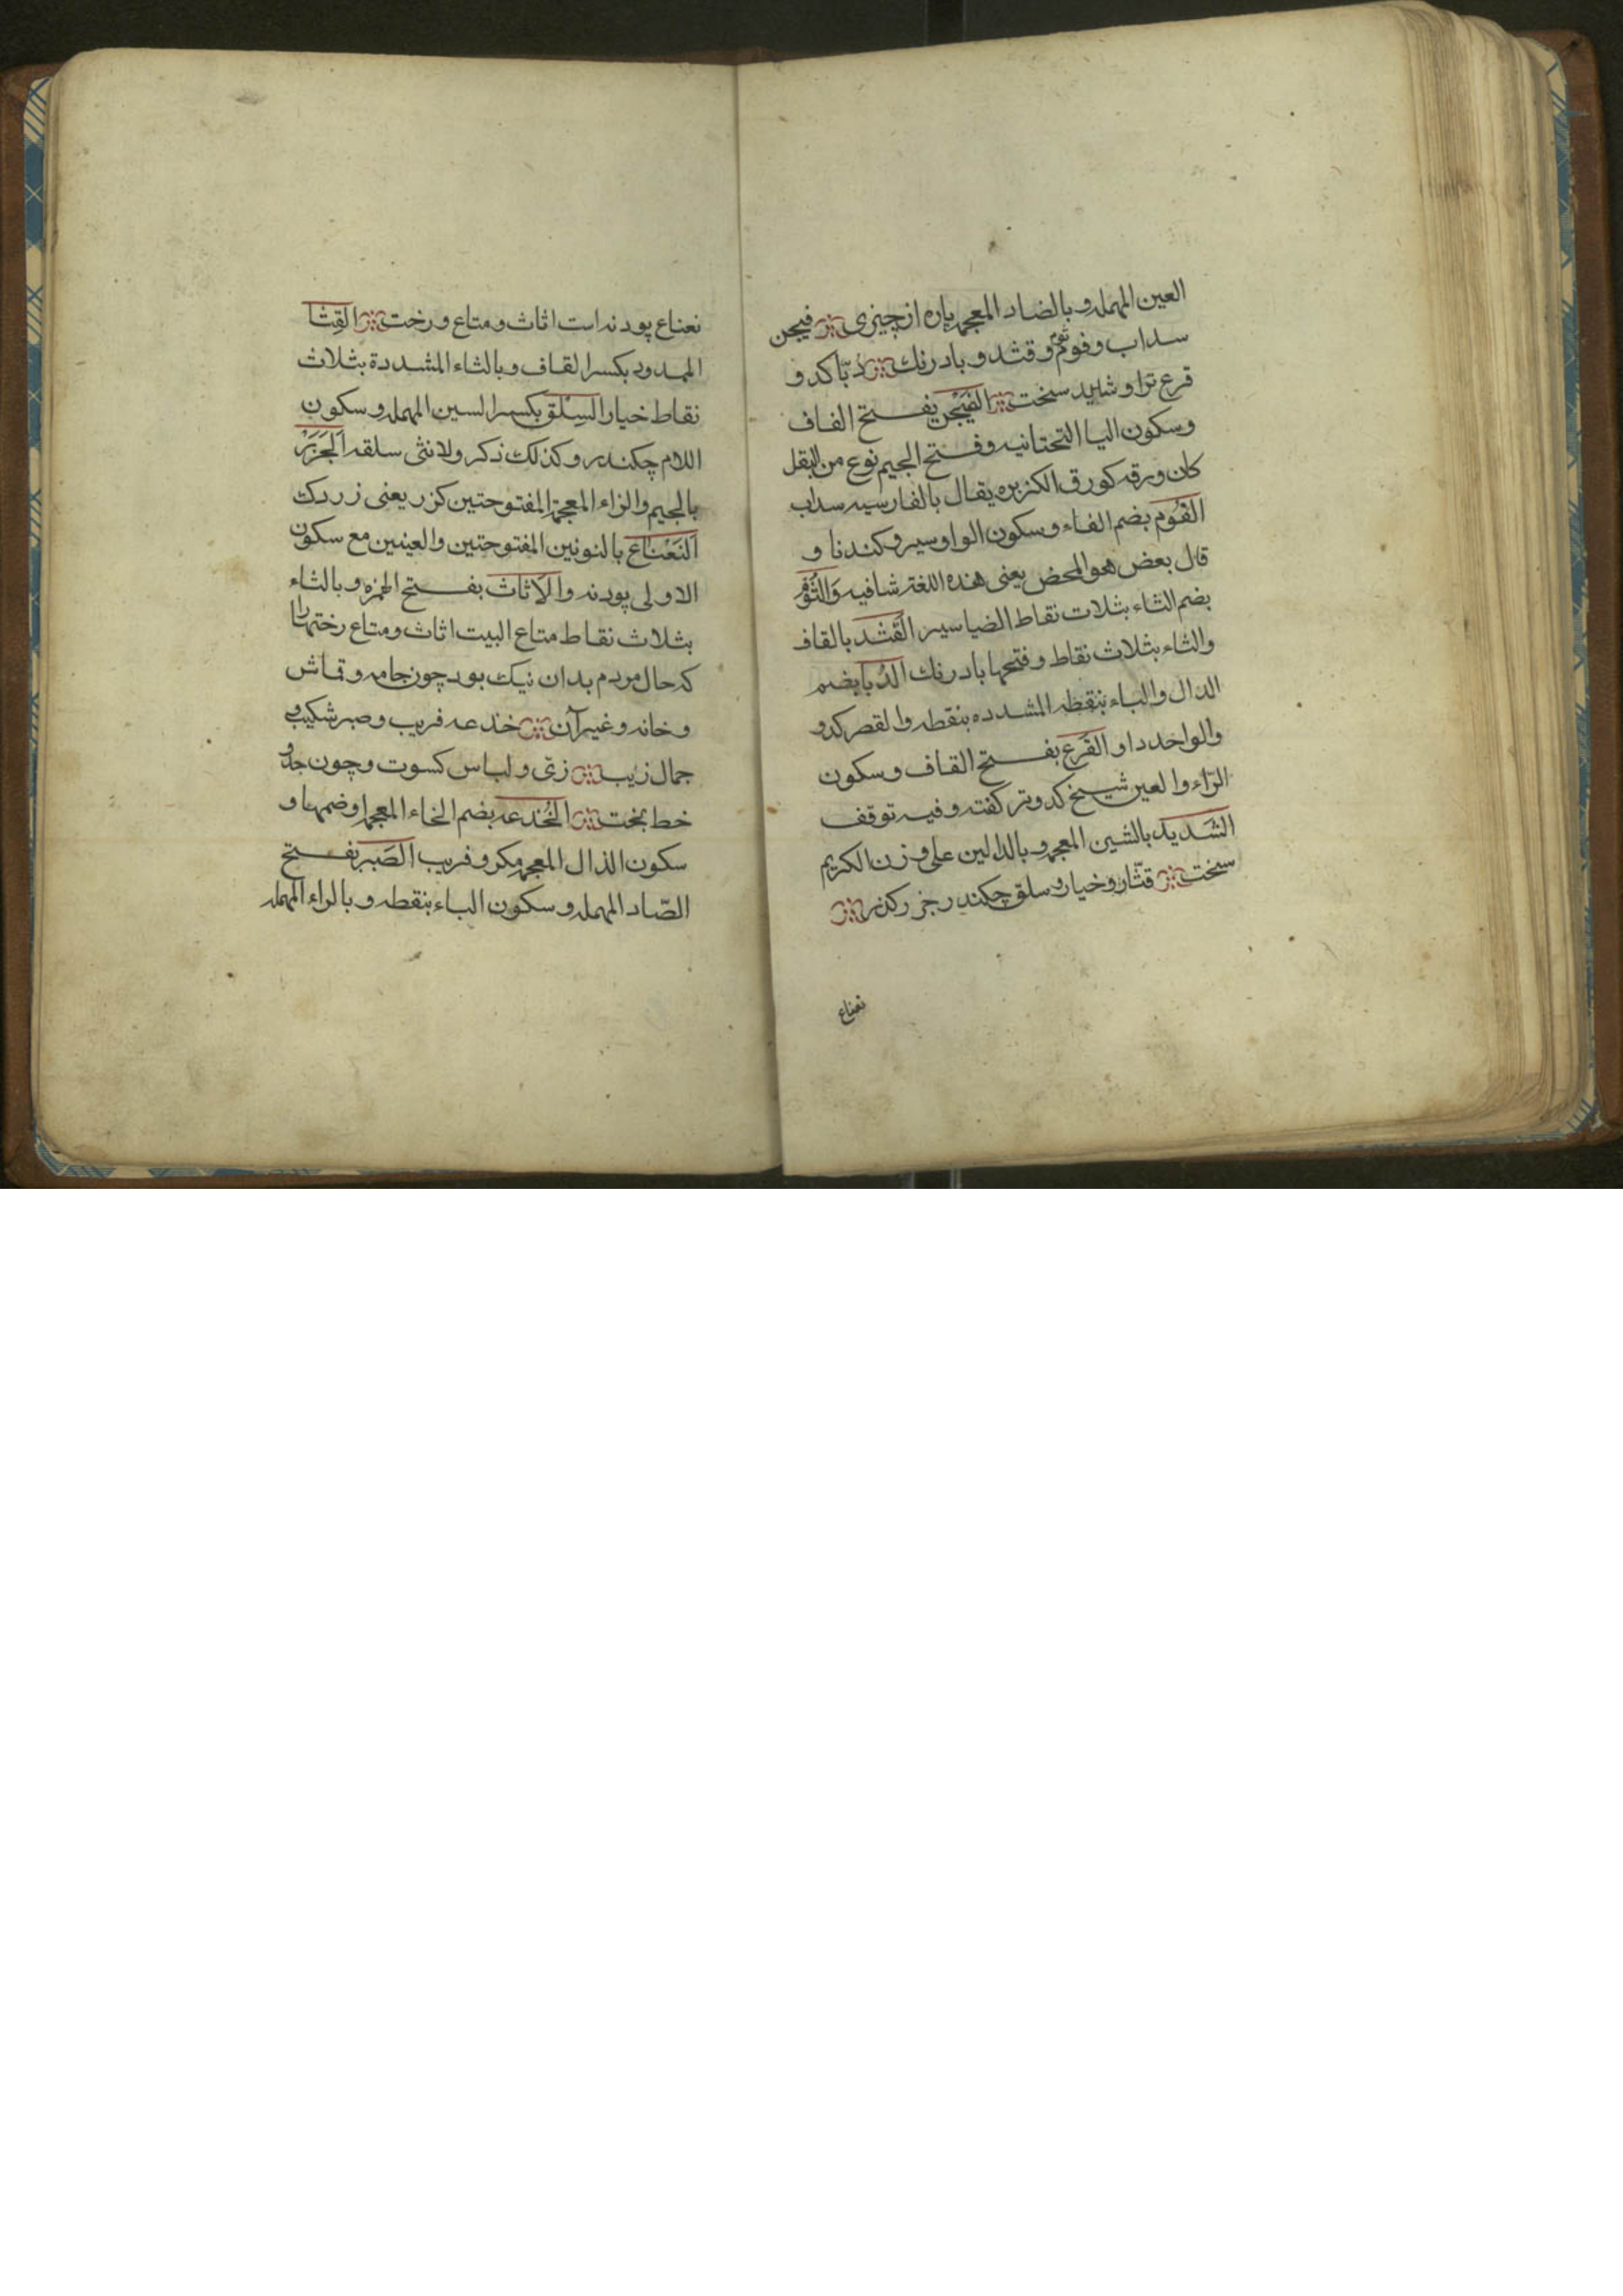 العين المهمله و بالضاد المعجمه پاره از چیزی فیجن
سداب و فوم ثوم و قثد و بادرنك دبّا كدو
قرع ترا و شدید سخت الفَیْجن بفتح الفاف
وسكون اليا التحتانيه وفتح الجيم نوع من البقل
كان ورقه كورق الكزبره يقال بالفارسيه سداب
الفُوم بضم الفاء و سكون الواو سیر و كندنا و
قال بعض هو المحض يعنى هذه اللغة شافيه وَالثُوْم
بضم الثاء بثلاث نقاط الضیا سیر القَثَد بالقاف
والثاء بثلاث نقاط و فتحها بادرنك الدُبا بضم
الدال والباء بنقطه المشدده بنقطه والقصر كدو
والواحد دا و القَرع بفتح القاف و سكون
الرّاء والعين شيخ كدو تر كفته و فيه توقف
الشَديد بالشين المعجمه و بالدالين على وزن الكريم
سخت قثّا و خيار و سلق چكندر جزر كذر
نعناع
نعناع پودنه است اثاث و متاع و رخت القِثا
الممدود بكسر القاف و بالثاء المشددة بثلاث
نقاط خيار السِلق بكسر السين المهمله و سكون
اللام چكندر و كذلك ذكر و لانثى سلقه اَلجَزَر
بالجيم والزاء المعجمة المفتوحتين كزر يعنى زردك
اَلنَعْناع بالنونين المفتوحتين والعينين مع سكون
الاولى پودنه والاَثاث بفتح الهمزه و بالثاء
بثلاث نقاط متاع البيت اثاث و متاع رختها را
كه حال مردم بدان نيك بود چون جامه و قماش
و خانه و غير آن خدعه فريب و صبر شكيب و
جمال زيب زىّ و لباس كسوت و چون جدّ و
خط بخت الخُدعه بضم الخاء المعجمه او ضمها و
سكون الذال المعجمه مكر و فريب الصَبر بفتح
الصّاد المهمله و سكون الباء بنقطه و بالراء المهمله